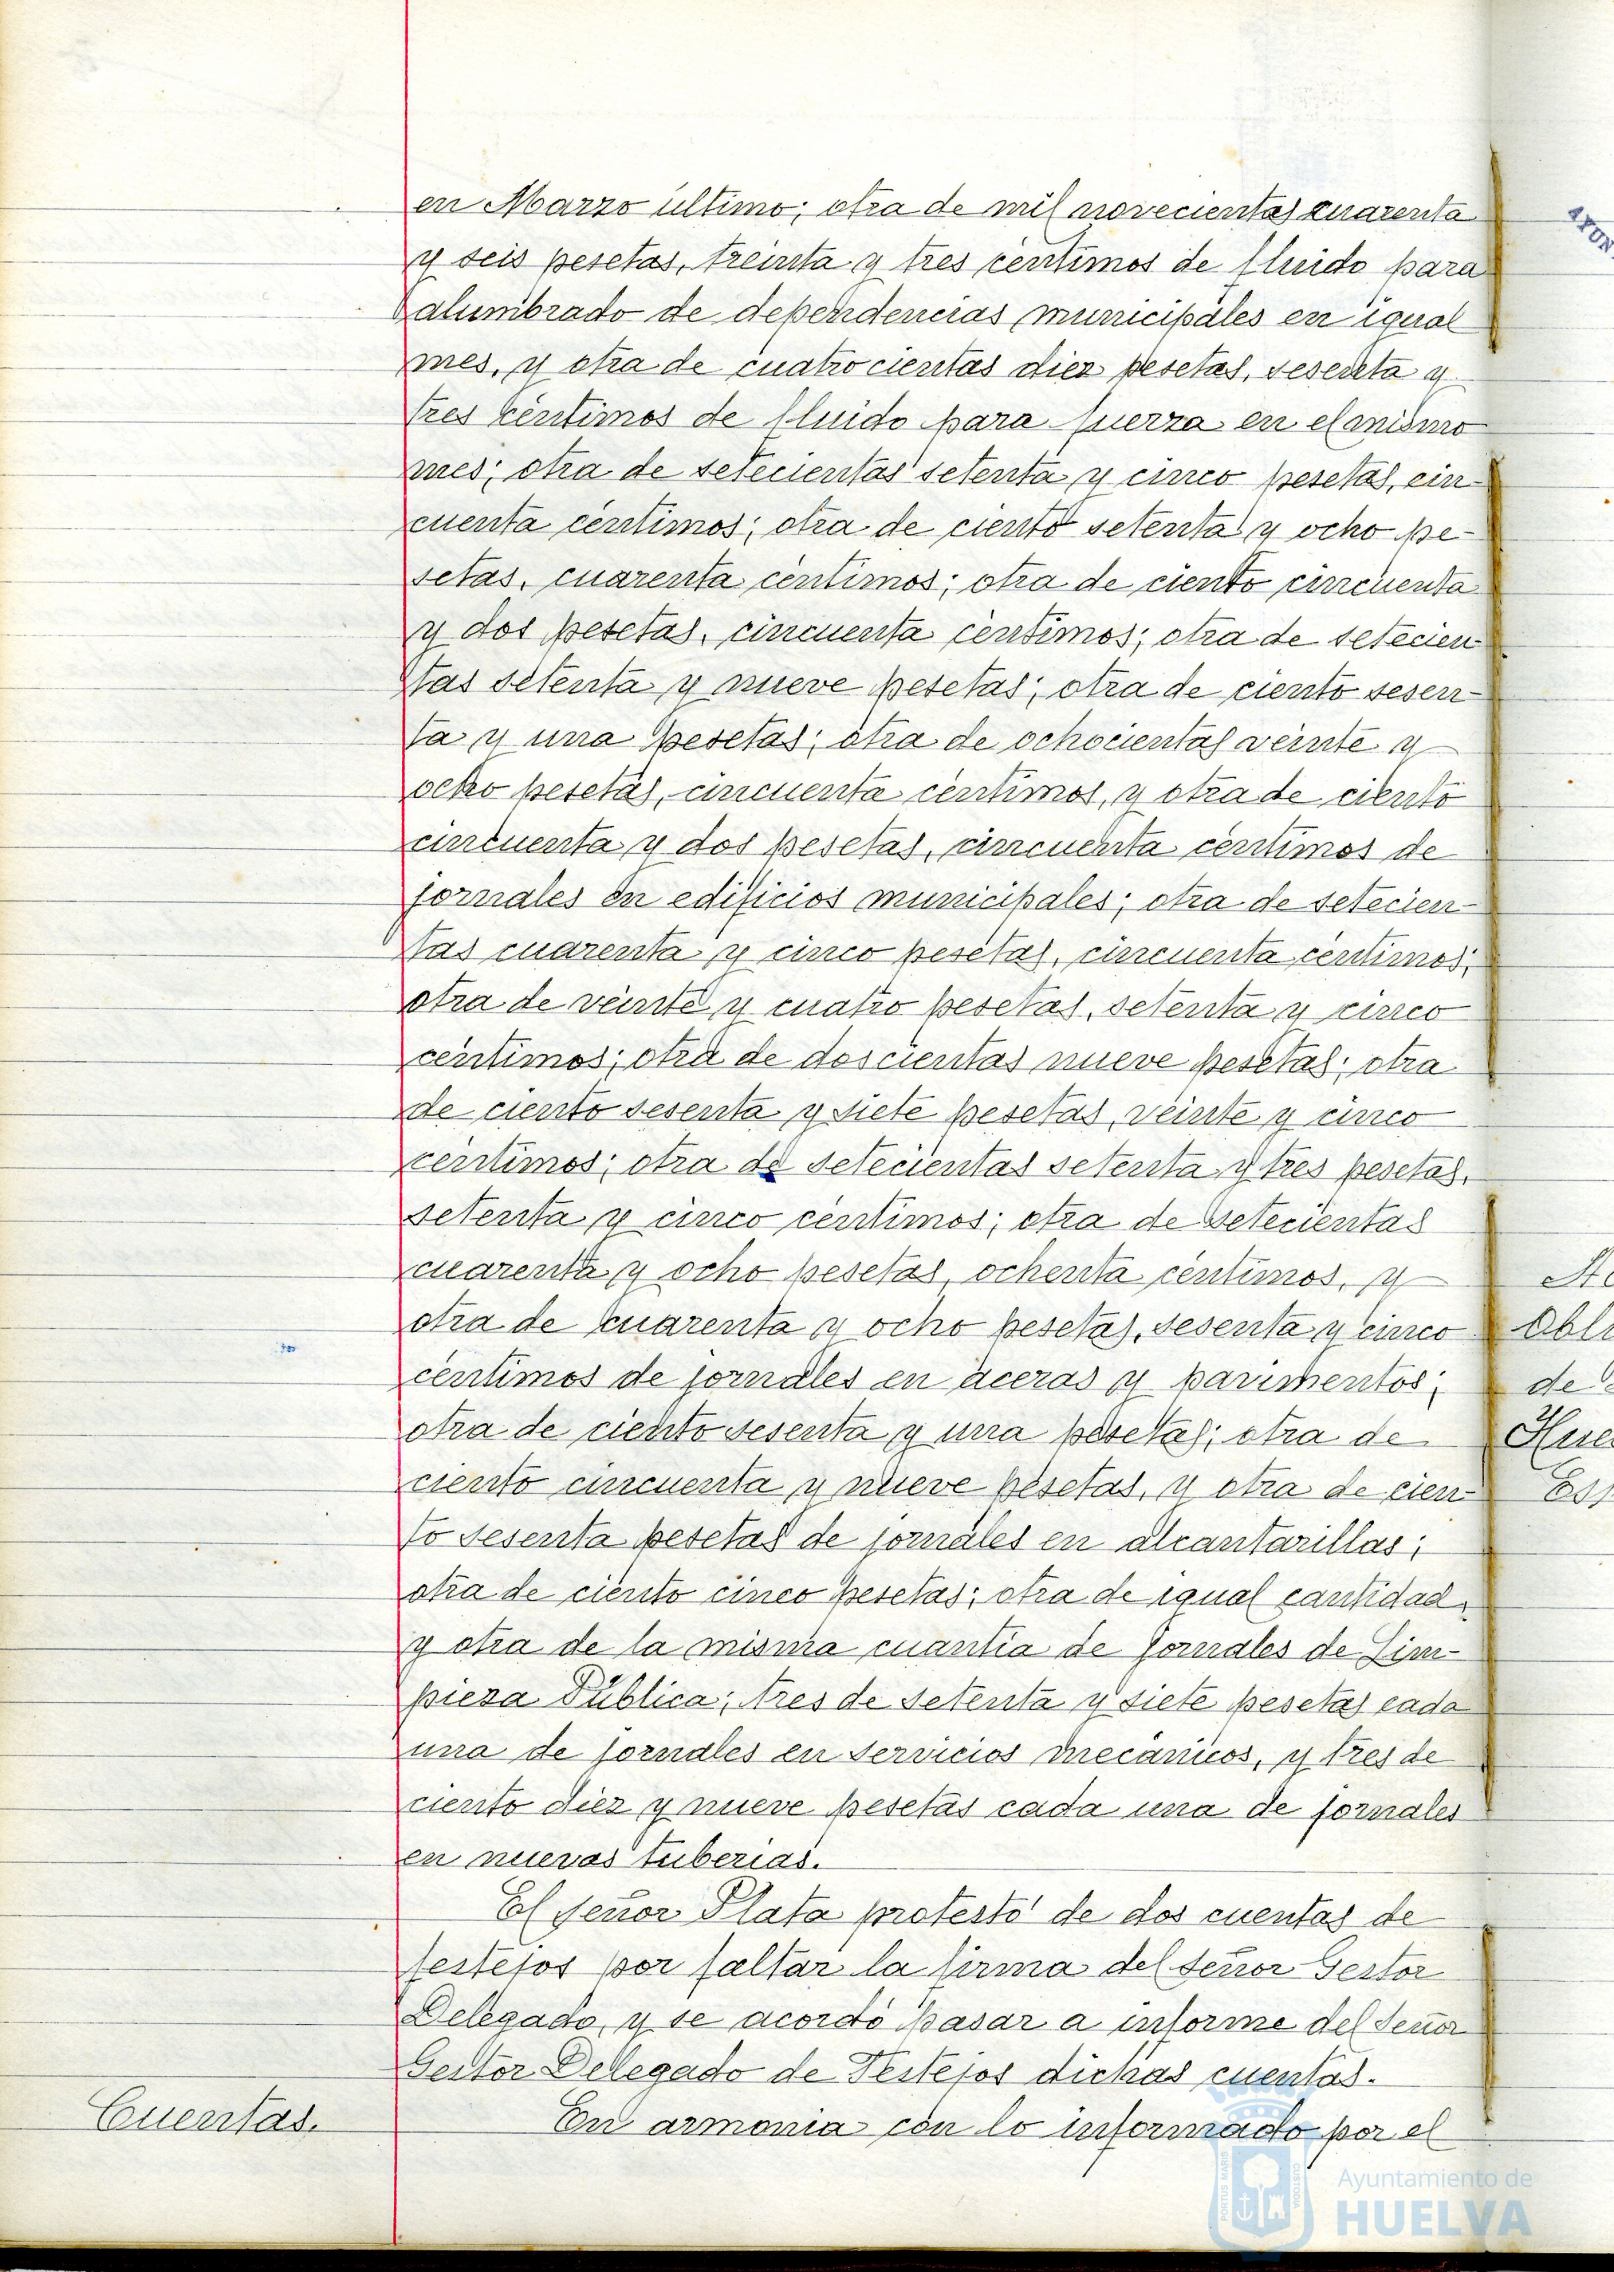 en Marzo último; otra de mil novecientas cuarenta
y seis pesetas, treinta y tres céntimos de fluido para
alumbrado de dependencias municipales en igual
mes, y otra de cuatrocientas diez pesetas, sesenta y
tres céntimos de fluido para fuerza en el mismo
mes; otra de setecientas setenta y cinco pesetas, cin-
cuenta céntimos; otra de ciento setenta y ocho pe-
setas, cuarenta céntimos; otra de ciento cincuenta
y dos pesetas, cincuenta céntimos; otra de setecien-
tas setenta y nueve pesetas; otra de ciento sesen-
ta y una pesetas; otra de ochocientas veinte y
ocho pesetas, cincuenta céntimos, y otra de ciento
cincuenta y dos pesetas, cincuenta céntimos de
jornales en edificios municipales; otra de setecien-
tas cuarenta y cinco pesetas, cincuenta céntimos;
otra de veinte y cuatro pesetas, setenta y cinco
céntimos; otra de doscientas nueve pesetas; otra
de ciento sesenta y siete pesetas, veinte y cinco
céntimos; otra de setecientas setenta y tres pesetas,
setenta y cinco céntimos; otra de setecientas
cuarenta y ocho pesetas, ochenta céntimos, y
otra de cuarenta y ocho pesetas, sesenta y cinco
céntimos de jornales en aceras y pavimentos;
otra de ciento sesenta y una pesetas; otra de
ciento cincuenta y nueve pesetas, y otra de cien-
to sesenta pesetas de jornales en alcantarillas;
otra de ciento cinco pesetas; otra de igual cantidad,
y otra de la misma cuantía de jornales de Lim-
pieza Pública; tres de setenta y siete pesetas cada
una de jornales en servicios mecánicos, y tres de
ciento diez y nueve pesetas cada una de jornales
en nuevas tuberías.
El señor Plata protestó de dos cuentas de
festejos por faltar la firma del señor Gestor
Delegado, y se acordó pasar a informe del señor
Gestor Delegado de Festejos dichas cuentas.
Cuentas.
En armonía con lo informado por el
Ayuntamiento de
HUELVA